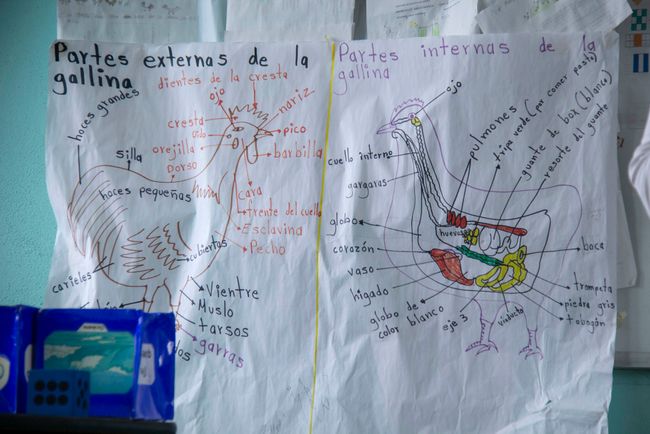 Partes externas de la
gallina
dientes de la cresta
ojo
nariz
hoces grandes
cresta
oido
pico
orejilla
barbilla
silla
Dorso
hoces pequeñas
cara
frente del cuello
Esclavina
Pecho
cubiertas
carieles
Vientre
Muslo
tarsos
garras
Partes internas de la
gallina
ojo
pulmones
tripa verde (por comer pasto)
guante de box (blanco)
resorte del guante
cuello interno
gargaras
globo
huevos
corazón
boca
vaso
higado
trompeta
globo de
color blanco
piedra gris
eje 3
viaducto
tobogán